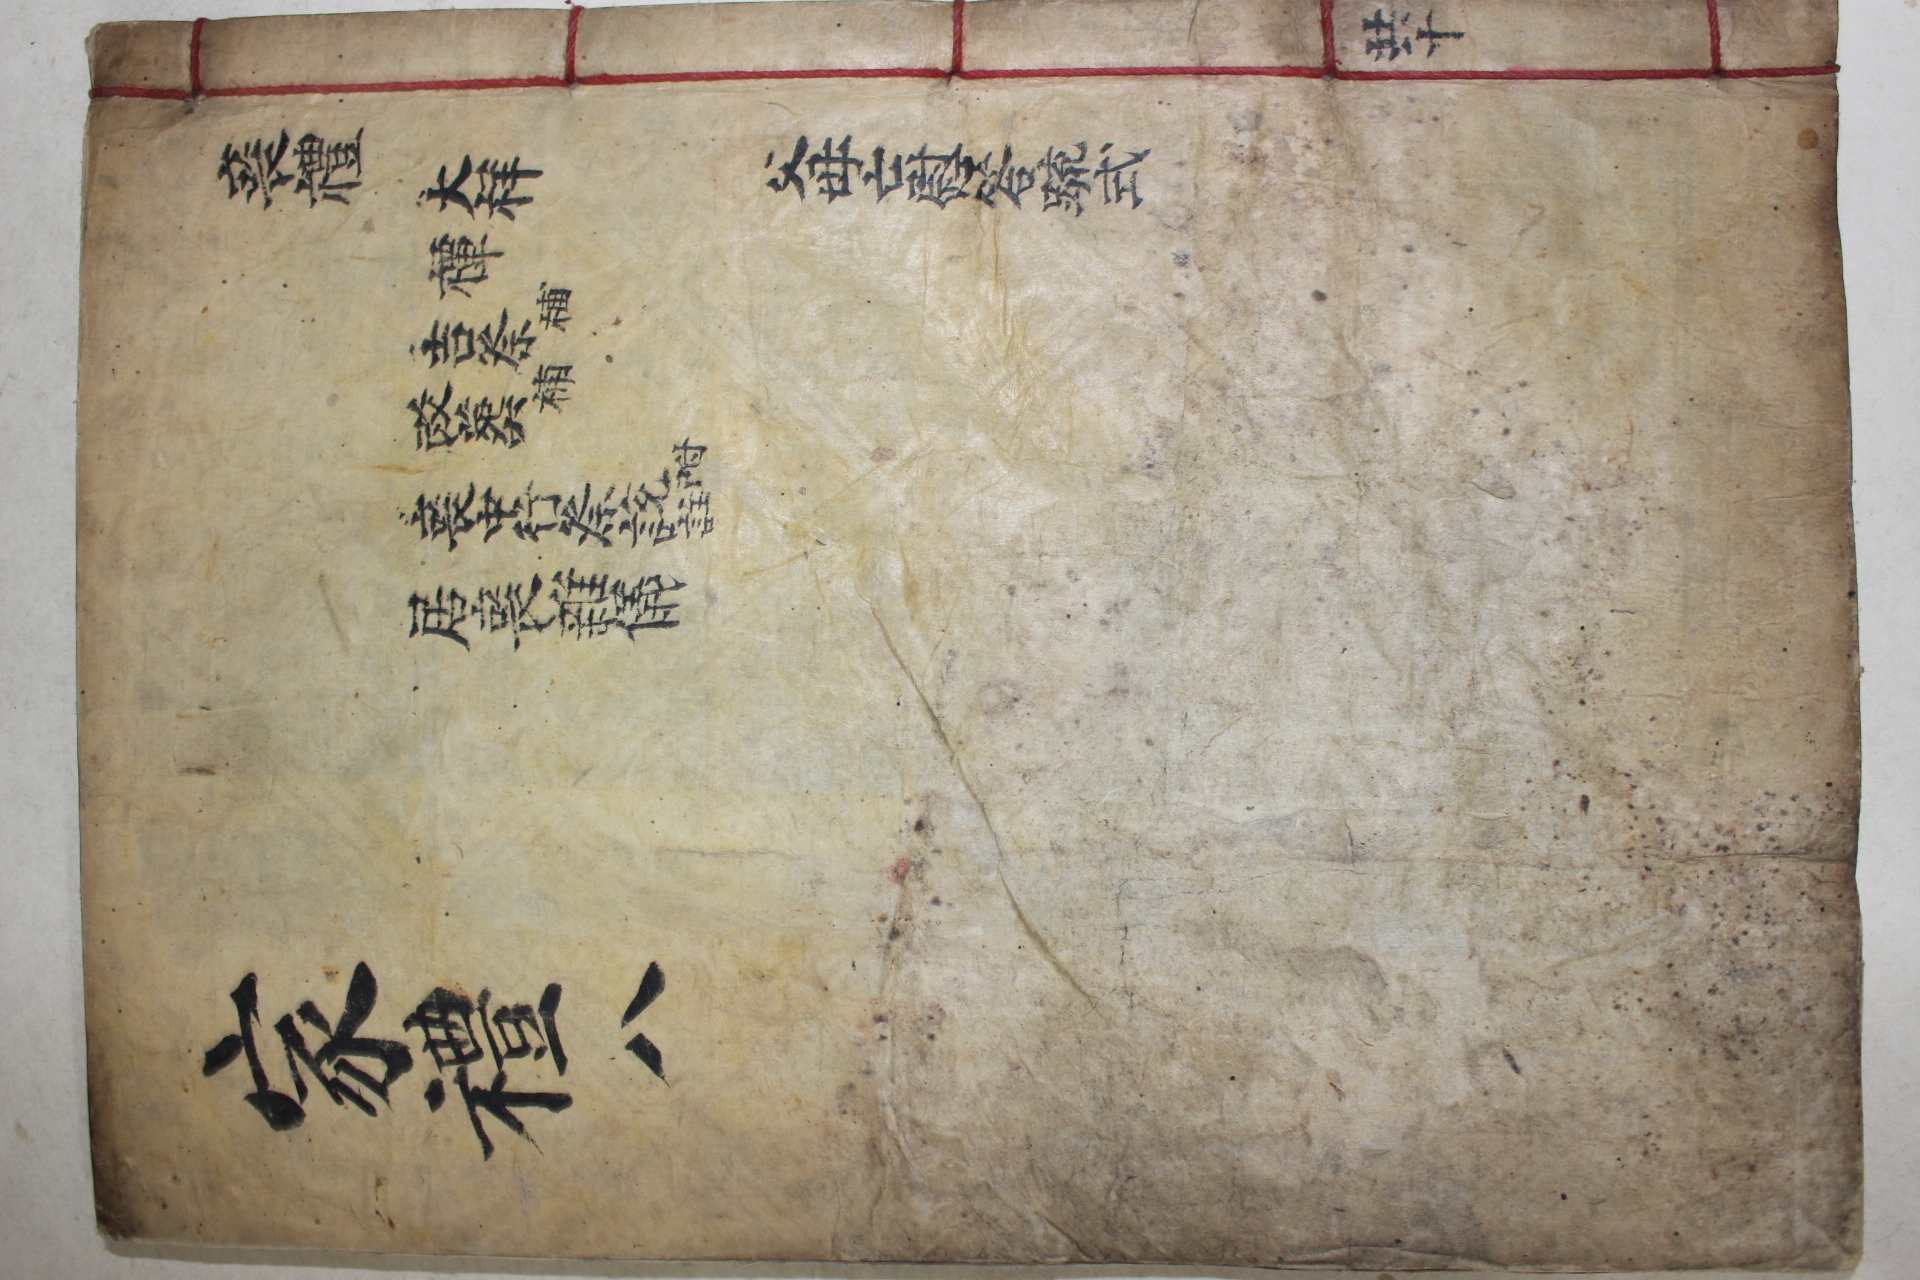 共十
喪禮
父母亡慰答疏式
大祥
禫
吉祭補
改葬補
喪中行祭說附註
居喪雜儀
家禮 八